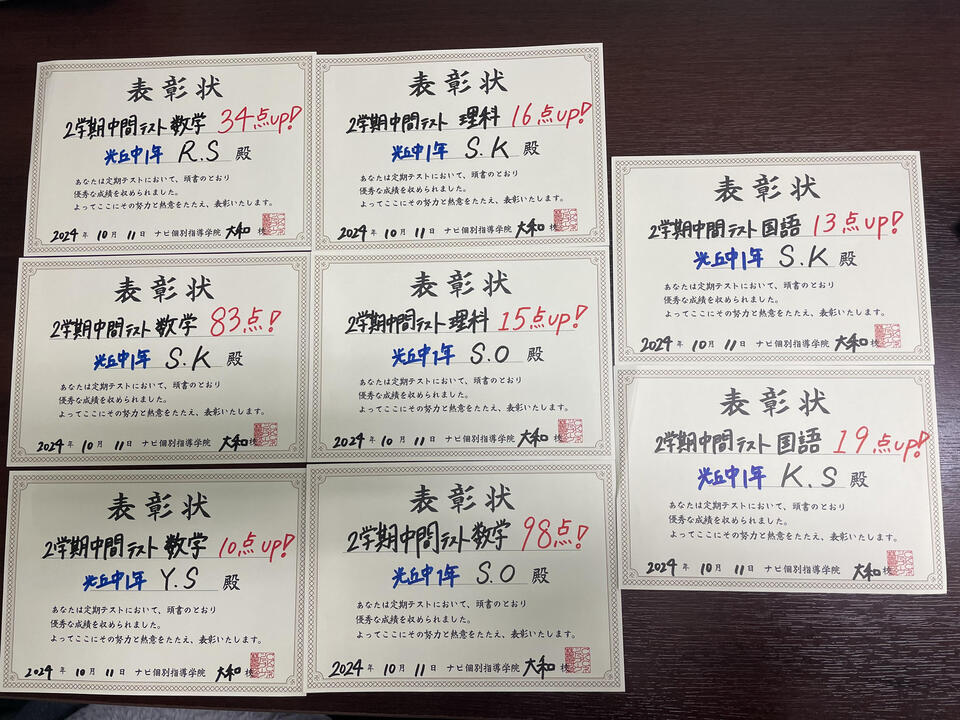 表彰状
2学期中間テスト 数学 34点up!
光丘中1年 R.S 殿
あなたは定期テストにおいて、頭書のとおり
優秀な成績を収められました。
よってここにその努力と熱意をたたえ、表彰いたします。
2024年 10月 11日 ナビ個別指導学院 大和校
表彰状
2学期中間テスト 理科 16点up!
光丘中1年 S.K 殿
あなたは定期テストにおいて、頭書のとおり
優秀な成績を収められました。
よってここにその努力と熱意をたたえ、表彰いたします。
2024年 10月 11日 ナビ個別指導学院 大和校
表彰状
2学期中間テスト 国語 13点up!
光丘中1年 S.K 殿
あなたは定期テストにおいて、頭書のとおり
優秀な成績を収められました。
よってここにその努力と熱意をたたえ、表彰いたします。
2024年 10月 11日 ナビ個別指導学院 大和校
表彰状
2学期中間テスト 数学 83点!
光丘中1年 S.K 殿
あなたは定期テストにおいて、頭書のとおり
優秀な成績を収められました。
よってここにその努力と熱意をたたえ、表彰いたします。
2024年 10月 11日 ナビ個別指導学院 大和校
表彰状
2学期中間テスト 理科 15点up!
光丘中1年 S.O 殿
あなたは定期テストにおいて、頭書のとおり
優秀な成績を収められました。
よってここにその努力と熱意をたたえ、表彰いたします。
2024年 10月 11日 ナビ個別指導学院 大和校
表彰状
2学期中間テスト 国語 19点up!
光丘中1年 K.S 殿
あなたは定期テストにおいて、頭書のとおり
優秀な成績を収められました。
よってここにその努力と熱意をたたえ、表彰いたします。
2024年 10月 11日 ナビ個別指導学院 大和校
表彰状
2学期中間テスト 数学 10点up!
光丘中1年 Y.S 殿
あなたは定期テストにおいて、頭書のとおり
優秀な成績を収められました。
よってここにその努力と熱意をたたえ、表彰いたします。
2024年 10月 11日 ナビ個別指導学院 大和校
表彰状
2学期中間テスト 数学 98点!
光丘中1年 S.O 殿
あなたは定期テストにおいて、頭書のとおり
優秀な成績を収められました。
よってここにその努力と熱意をたたえ、表彰いたします。
2024年 10月 11日 ナビ個別指導学院 大和校